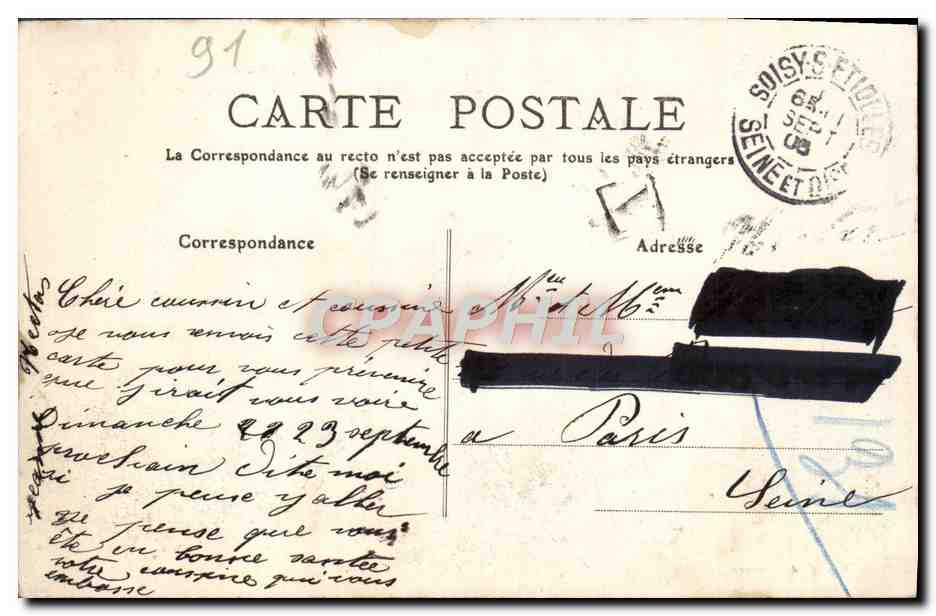 91
CARTE POSTALE
La Correspondance au recto n'est pas acceptée par tous les pays étrangers
(Se renseigner à la Poste)
SOISY-S-ETIOLLES
SEPT
SEINE ET OISE
T
Correspondance
Adresse
Chére coussin et coussine
je vous envois cette petite
carte pour vous prévenire
que j'irait vous voire
Dimanche 23 septembre
prochain dite moi
si je peuse y aller
je pense que vous
ête en bonne santée
votre coussine qui vous
embasse
Mr et Mme
a Paris
Seine
CPAPHIL